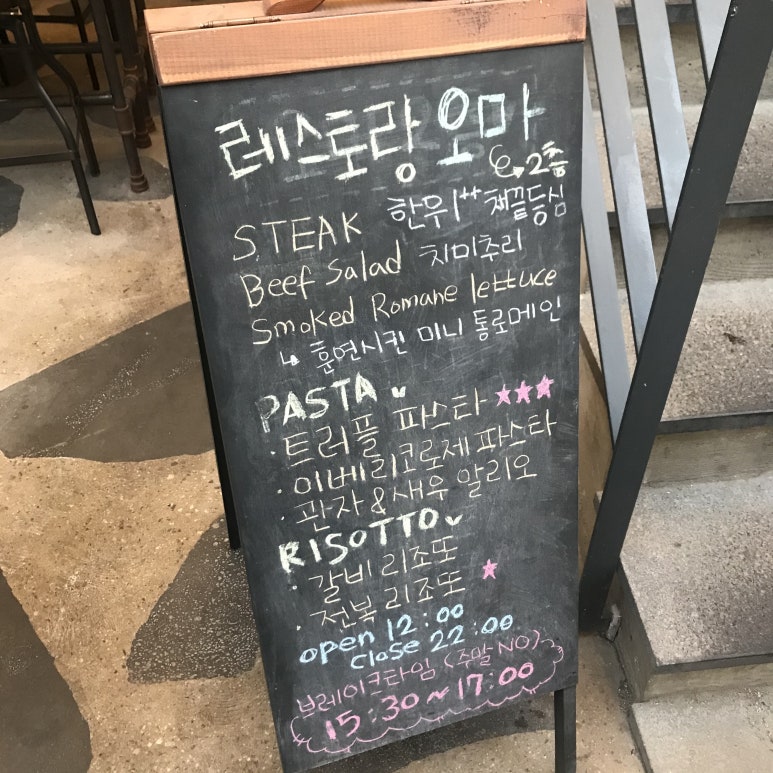 레스토랑 오마
2층
STEAK 한우1++ 채끝등심
Beef Salad 치미추리
Smoked Romane lettuce
↳ 훈연시킨 미니 통로메인
PASTA
· 트러플 파스타 ★★★
· 이베리코로제 파스타
· 관자 & 새우 알리오
RISOTTO
· 갈비 리조또
· 전복 리조또 ★
open 12:00
close 22:00
브레이크타임 (주말 NO)
15:30~17:00